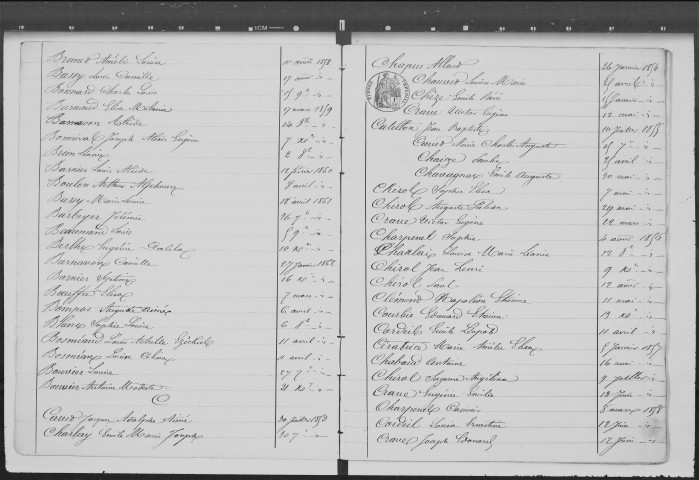 Brunet Amélie Louise 10 août 1858
Bussy Louis Camille 17 août -"-
Bonnard Charles Louis 15 9e -"-
Barnaud Elisa Mélanie 17 mars 1859
Barnavon Mélida 14 8e -"-
Bonneral Joseph Albin Eugène 7 Xe -"-
Brun Louise 2 8e -"-
Barnier Louis Alcide 12 février 1860
Boulon Arthur Alphonse 8 avril -"-
Bussy Marie Louise 18 avril 1861
Barboyer Jérémie 26 7e -"-
Beaumond Louis 5 9e -"-
Berthe Eugénie 10 Xe -"-
Barnavon Camille 27 janvier 1862
Barnier 16 Xe -"-
Bouffré Elisa 7 mars -"-
Bompas Auguste 6 avril -"-
Blanc Sophie Louise 6 8e -"-
Bosméand Louis Achille 11 avril -"-
Bosméans Louise 11 avril -"-
Bouvier Louise 27 7e -"-
Bouvier Antoine Modeste 21 Xe -"-
C
Caneo Jacques Adolphe Aimé 30 juillet 1853
Charlay Emile Marie Joseph 30 7e -"-
Chapus Allard 26 janvier 1854
Chauvet Louise Marie avril -"-
Chèze Emile Aimé janvier -"-
Crave Victor Eugène 12 mai -"-
Catillon Jean Baptiste 10 juillet 1855
Canet Charles Auguste 15 7e -"-
Chaize 21 avril -"-
Chavagnac Emile Auguste 30 mai -"-
Chirol Sophie Elisa 7 mai -"-
Chirol Auguste 29 mai -"-
Crave Victor Eugène 22 mars -"-
Charpenel Sophie 4 août 1856
Chablaix Louise Marie 12 8e -"-
Chirol Jean Henri 9 Xe -"-
Chirol Paul 12 août -"-
Clémend Napoléon Etienne 11 mai -"-
Courbis Edouard Etienne 19 Xe -"-
Cordeil Emile Léopold 11 avril -"-
Ceratrice Marie Amélie Elisa 8 janvier 1857
Chabaud Antoine 16 mai -"-
Chirol Suzanne Angélina 9 juillet -"-
Crave Eugène Emile 13 juin -"-
Charpenel Casimir 3 mars 1858
Cordeil Louise Ernestine 12 juin -"-
Crave Joseph Edouard 12 juin -"-